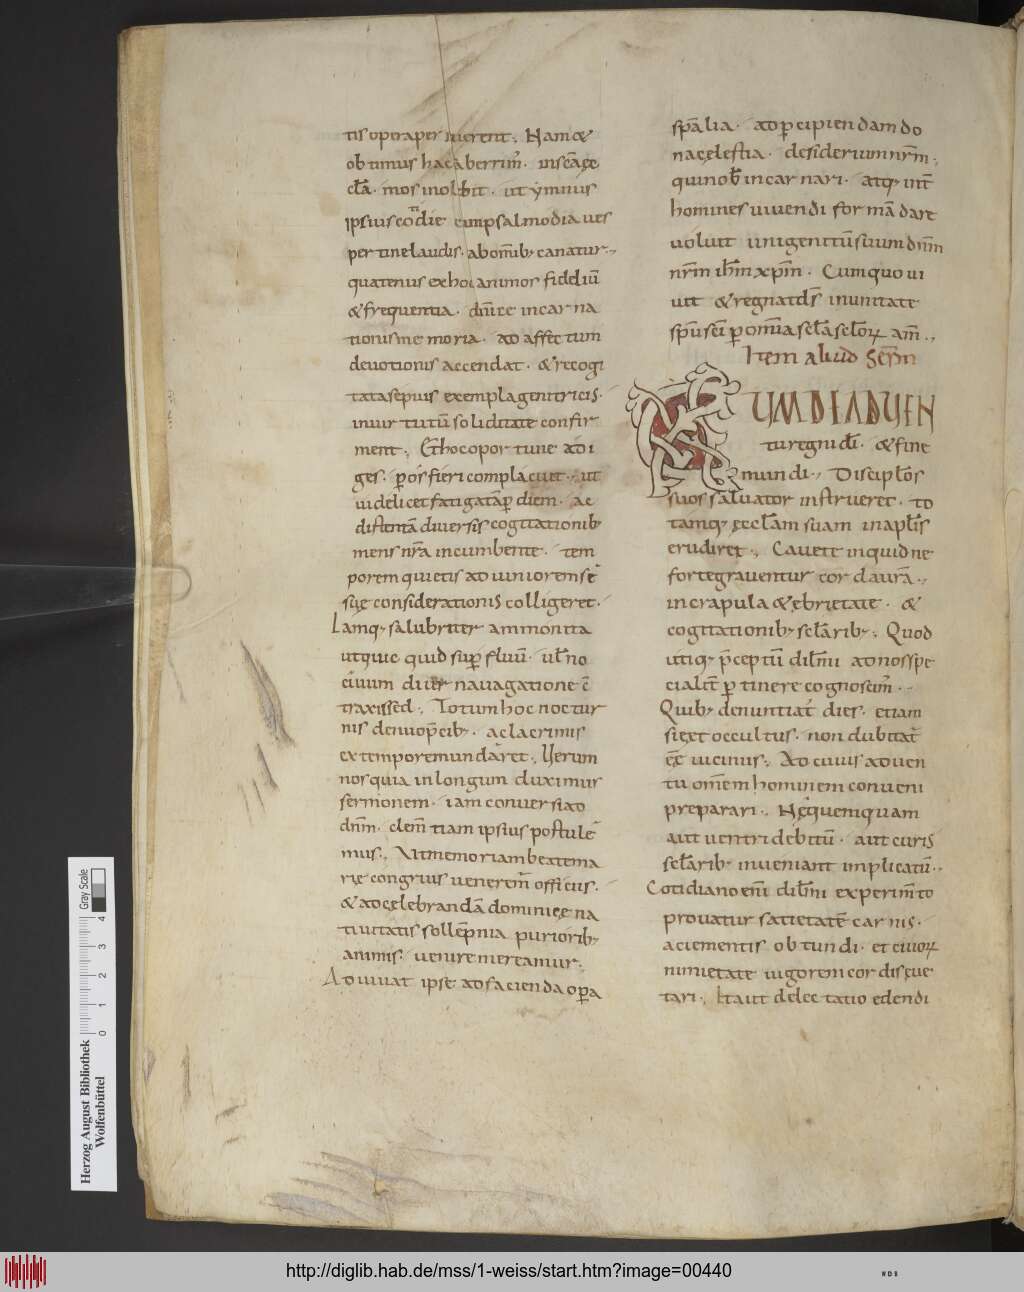 tis opera perhiberent. Nam &
obtimus hac aberrim̄. inscāȩe
cl̄a. mos inolbit. ut ymnus
ipsius cotidie cum psalmodia ues
pertine laudis. ab om̄ib; canatur.,
quatenus ex hoc animos fideliū
& frequentia. dn̄ice incarna
tionis memoria. ad affectum
deuotionis accendat. & recogi
tata sepius exempla genitricis.
in uirtutū soliditate confir
ment., Et hoc oportune adi
ges. p̄ os fieri complacuit., ut
uidelicet fatigatāp̄ diem. ac
distentā diuersis cogitationib;
mens nr̄a incumbente. tem
pore m quietis ad iuniorensē
suȩ considerationis colligeret.
Lamq; salubriter ammonita
utique quid sup̄fluū. ul̄ no
ciuum diurna uagatione c̄
traxissed., Totum hoc noctur
nis denuop̄cib;. ac lacrimis
ex tempore mundar̄et., Uerum
nos quia in longum duximus
sermonem. iam conuersi ad
dn̄m. clem̄tiam ipsius postulē
mus., Ut memoriam beatema
riȩ congruis uenerem̄ officiis.
& ad celebrandā dominicȩ na
tiuitatis sollēpnia puriorib;
animis. uenire mereamur.,
Adiuuat ipse ad facienda op̄a
sp̄alia. ad p̄cipiendam do
na cȩlestia. desiderium nr̄m.,
qui nob̄ incarnari. atq; int̄
homines uiuendi formā dare
uoluit unigenitū suum dn̄m
nr̄m ih̄m xp̄m. Cum quo ui
uit & regnat d̄s in unitate
sp̄us sc̄i p̄ omīa sc̄la sc̄lor̄ am̄.,
Item aliud Serm̄
CUM DE ADUEN
tu regni dī. & fine
mundi., Discipl̄os
suos saluator instrueret. to
tamq; ȩccl̄am suam in apl̄is
erudiret., Cauete inquid ne
forte grauentur corda ur̄a.,
in crapula & ebrietate. &
cogitationib; sc̄larib;., Quod
utiq; p̄ceptū dil̄mi ad nos spe
cialit̄ p̄tinere cognoscim̄.
Quib; denuntiat̄ dies. etiam
si est occultus. non dubitat̄
eē uicinus., Ad cuius aduen
tu om̄em hominem conueni
t preparari., Nȩ quemquam
aut uentri debitū. aut curis
sc̄larib; inueniant inplicatū.,
Cotidiano enī dil̄mi experim̄to
probatur satietatē carnis.
aciementis obtundi. et ciuor̄
nimietate uigorem cordis eue
tari., Ita ut delectatio edendi
Herzog August Bibliothek
Wolfenbüttel
0 1 2 3 4
Gray Scale
http://diglib.hab.de/mss/1-weiss/start.htm?image=00440